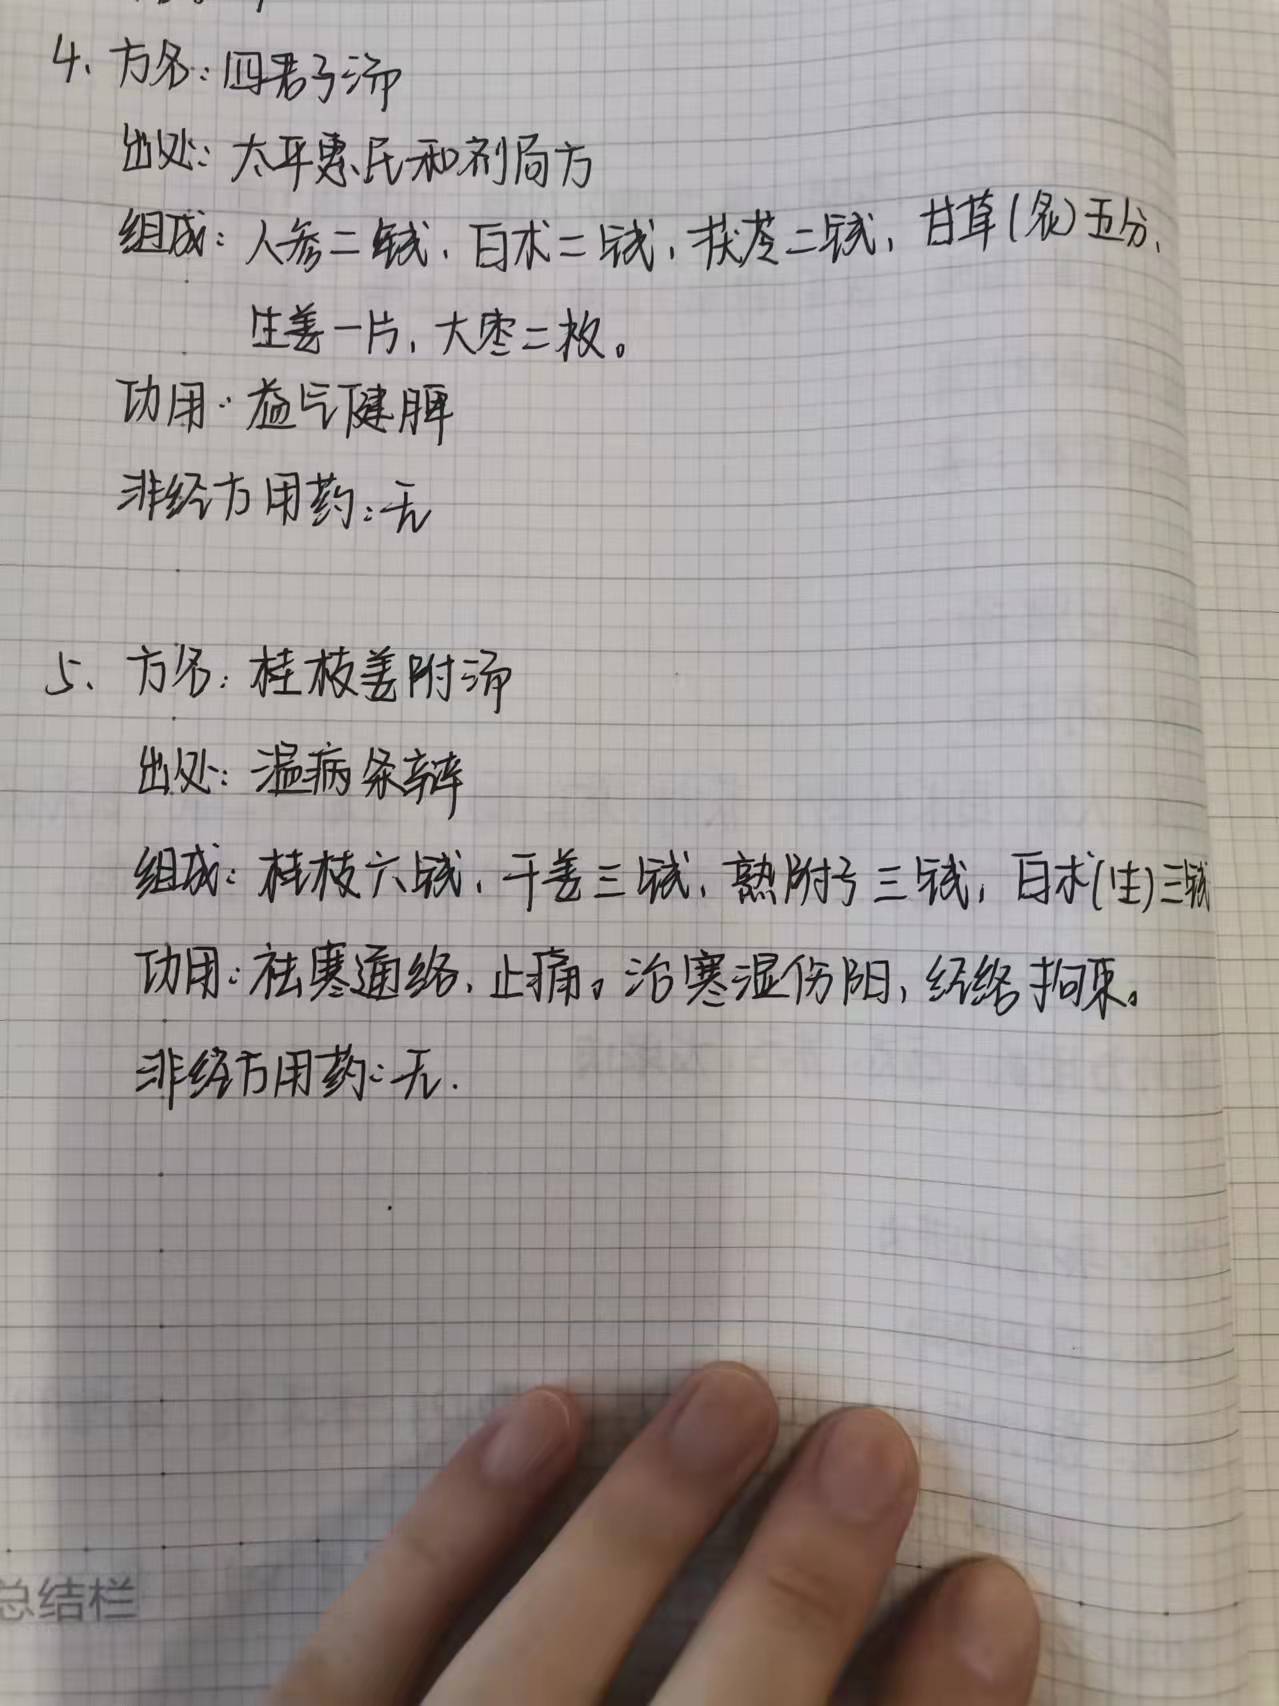 4、方名：四君子汤
出处：太平惠民和剂局方
组成：人参二钱，白术二钱，茯苓二钱，甘草(炙)五分，
生姜一片，大枣二枚。
功用：益气健脾
非经方用药：无
5、方名：桂枝姜附汤
出处：温病条辨
组成：桂枝六钱，干姜三钱，熟附子三钱，白术(生)三钱
功用：祛寒通络，止痛。治寒湿伤阳，经络拘束。
非经方用药：无.
总结栏